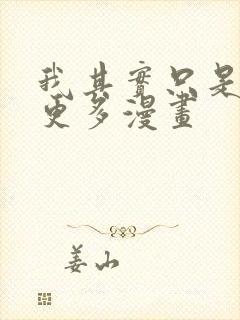 我其實只是
更多漫畫
姜山